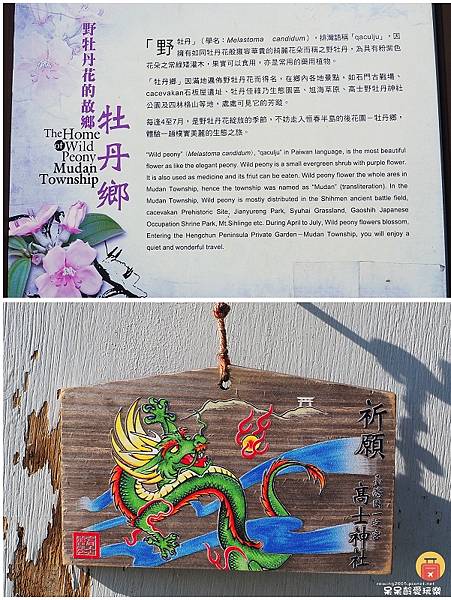 野牡丹花的故鄉
牡丹鄉
The Home
of Wild
Peony
Mudan
Township
「野牡丹」(學名:Melastoma candidum),排灣語稱「qaculju」,因
擁有如同牡丹花般雍容華貴的綺麗花朵而稱之野牡丹,為具有粉紫色
花朵之常綠矮灌木,果實可以食用,亦是常用的藥用植物。
「牡丹鄉」因滿地遍佈野牡丹花而得名,在鄉內各地景點,如石門古戰場、
cacevakan石板屋遺址、牡丹佳綠乃生態園區、旭海草原、高士野牡丹神社
公園及四林格山等地,處處可見它的芳蹤。
每逢4至7月,是野牡丹花綻放的季節,不妨走入恒春半島的後花園–牡丹鄉,
體驗一趟樸實美麗的生態之旅。
"Wild peony" (Melastoma candidum), "qaculju" in Paiwan language, is the most beautiful
flower as like the elegant peony. Wild peony is a small evergreen shrub with purple flower.
It is also used as medicine and its friut can be eaten. Wild peony flower the whole ares in
Mudan Township, hence the township was named as "Mudan" (transliteration). In the
Mudan Township, Wild peony is mostly distributed in the Shihmen ancient battle field,
cacevakan Prehistoric Site, Jianyureng Park, Syuhai Grassland, Gaoshih Japanese
Occupation Shrine Park, Mt.Sihlinge etc. During April to July, Wild peony flowers blossom,
Entering the Hengchun Peninsula Private Garden–Mudan Township, you will enjoy a
quiet and wonderful travel.
祈願
高士神社
呆呆郡愛玩樂